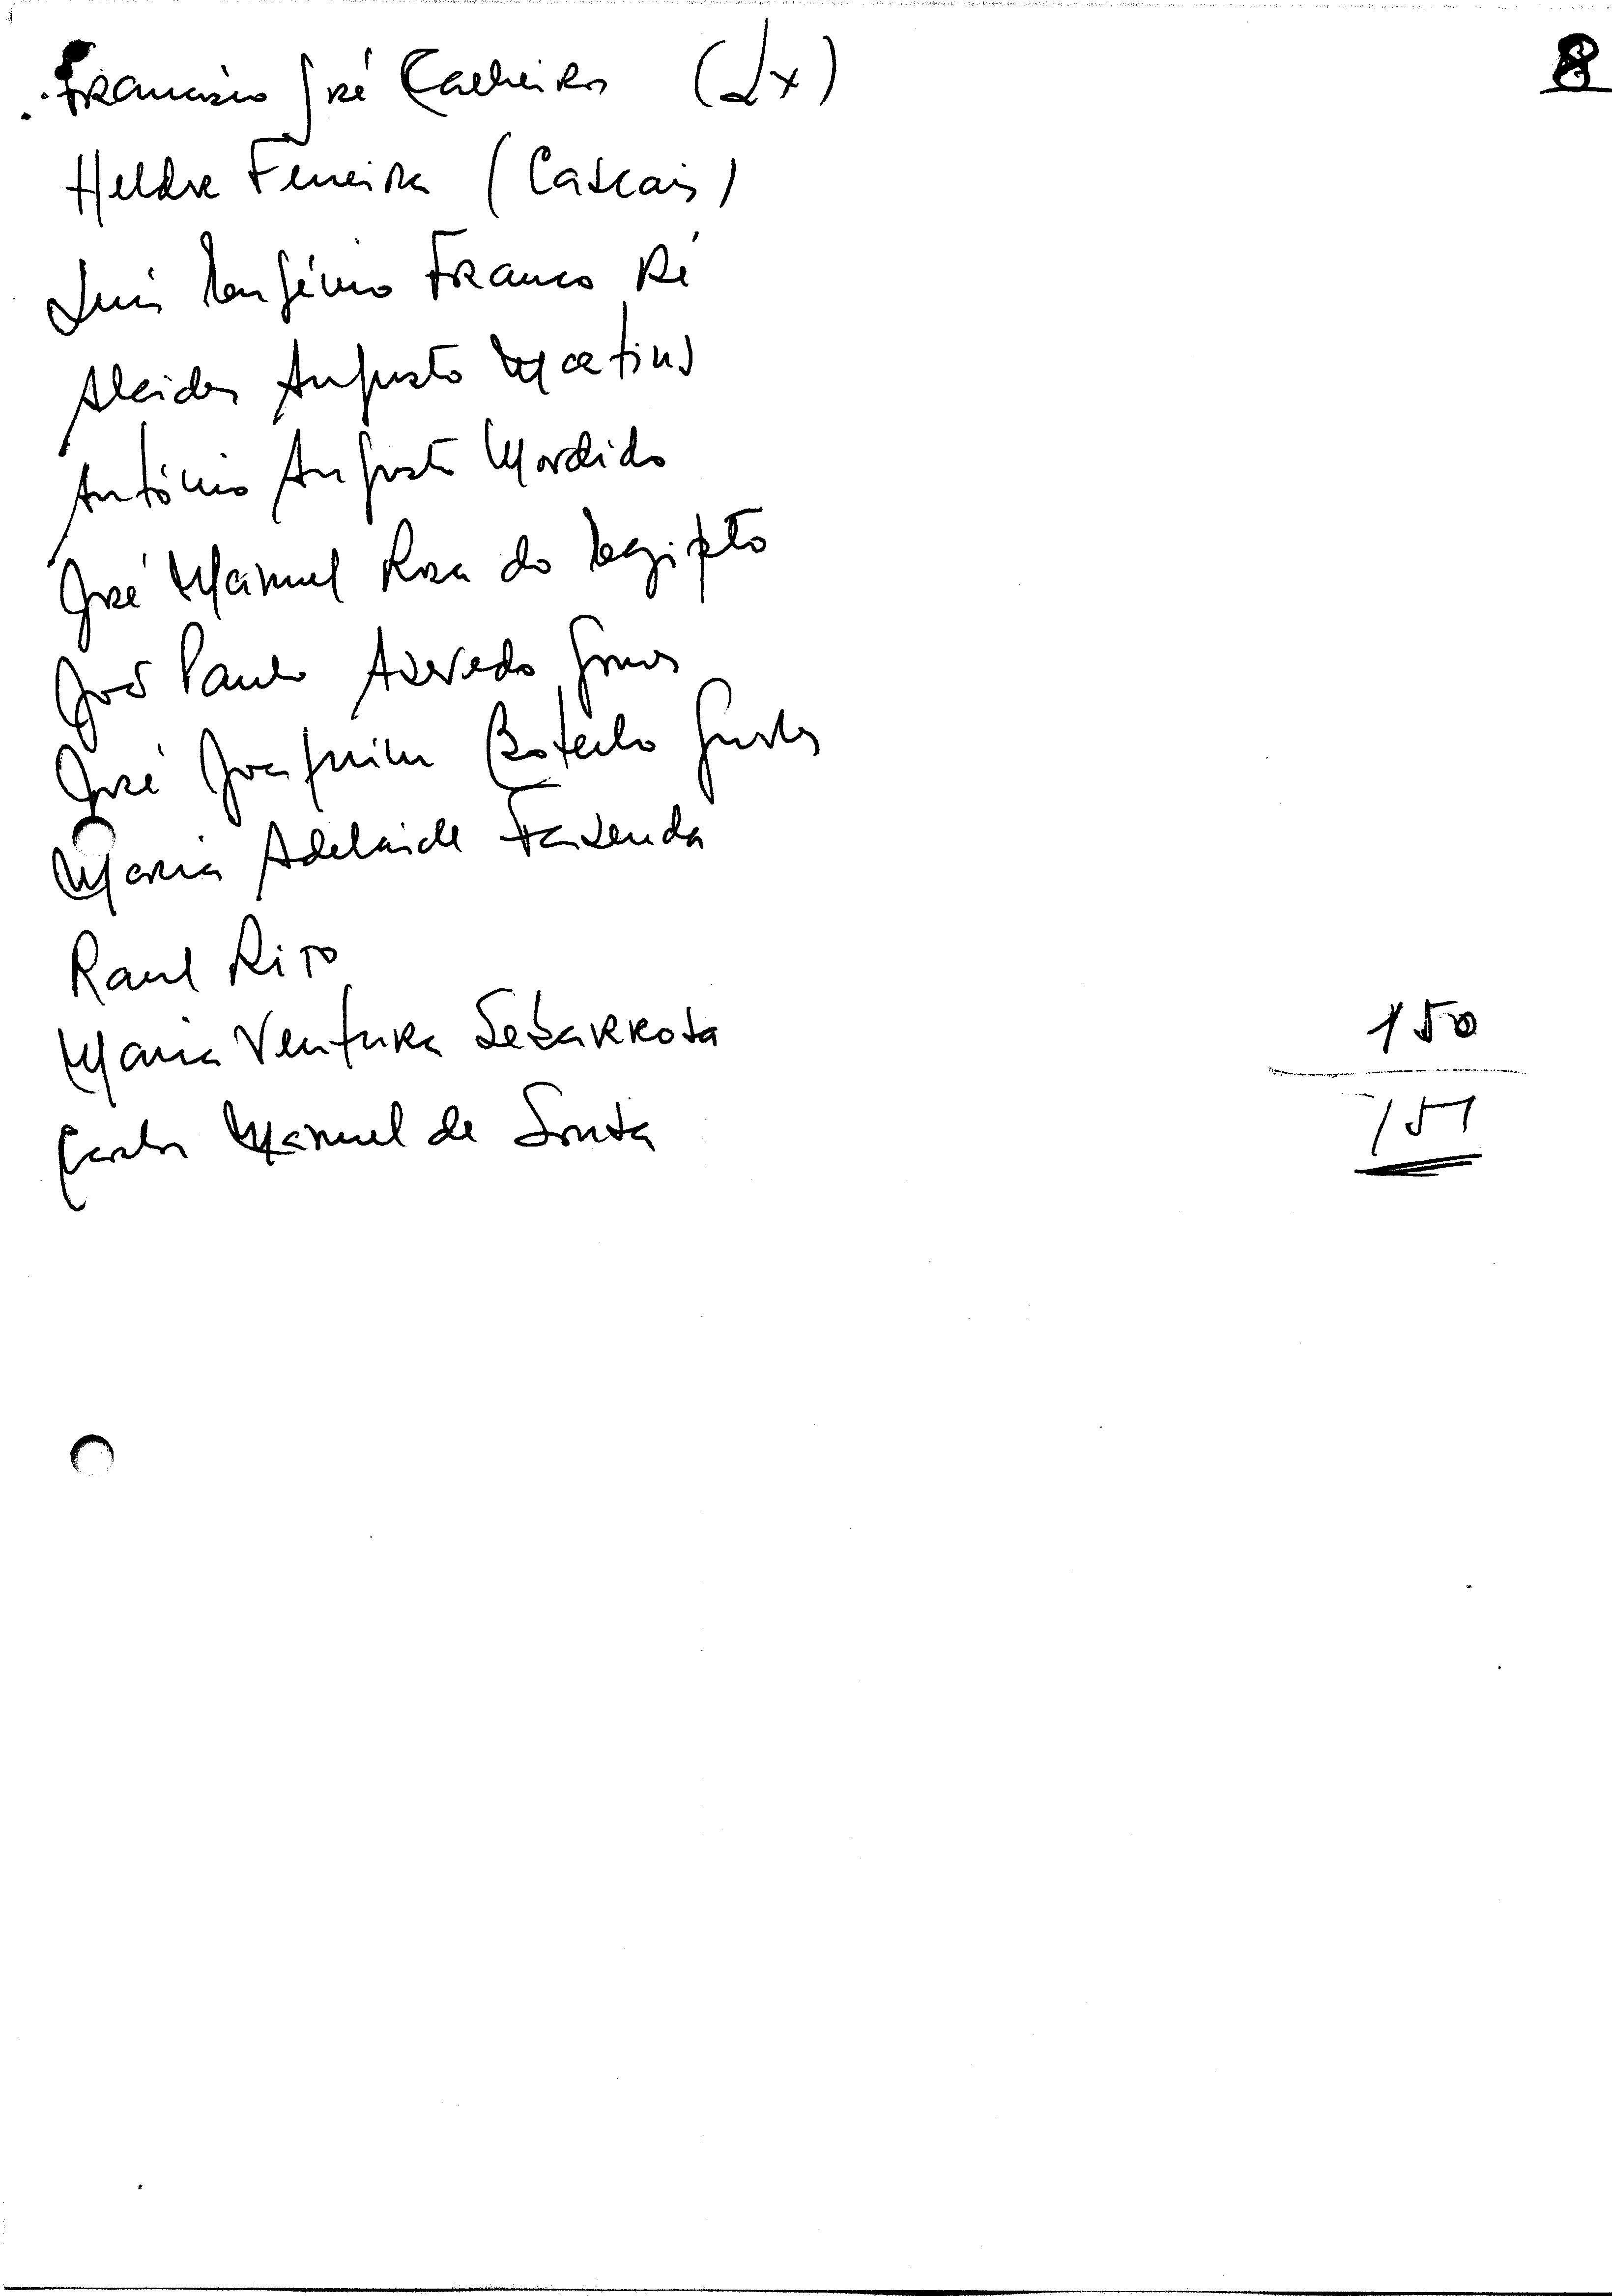 8
Francisco José Calheiros (Lx)
Helder Ferreira (Cascais)
Luís Eugénio Franco Ré
Alcides Augusto Martins
António Augusto Mordido
José Manuel Rosa do Egipto
João Paulo Azevedo Gomes
José Joaquim Botelho
Maria Adelaide Fazenda
Raul Rito
Maria Ventura Sebarrosa
Carlos Manuel de Sousa
150
151